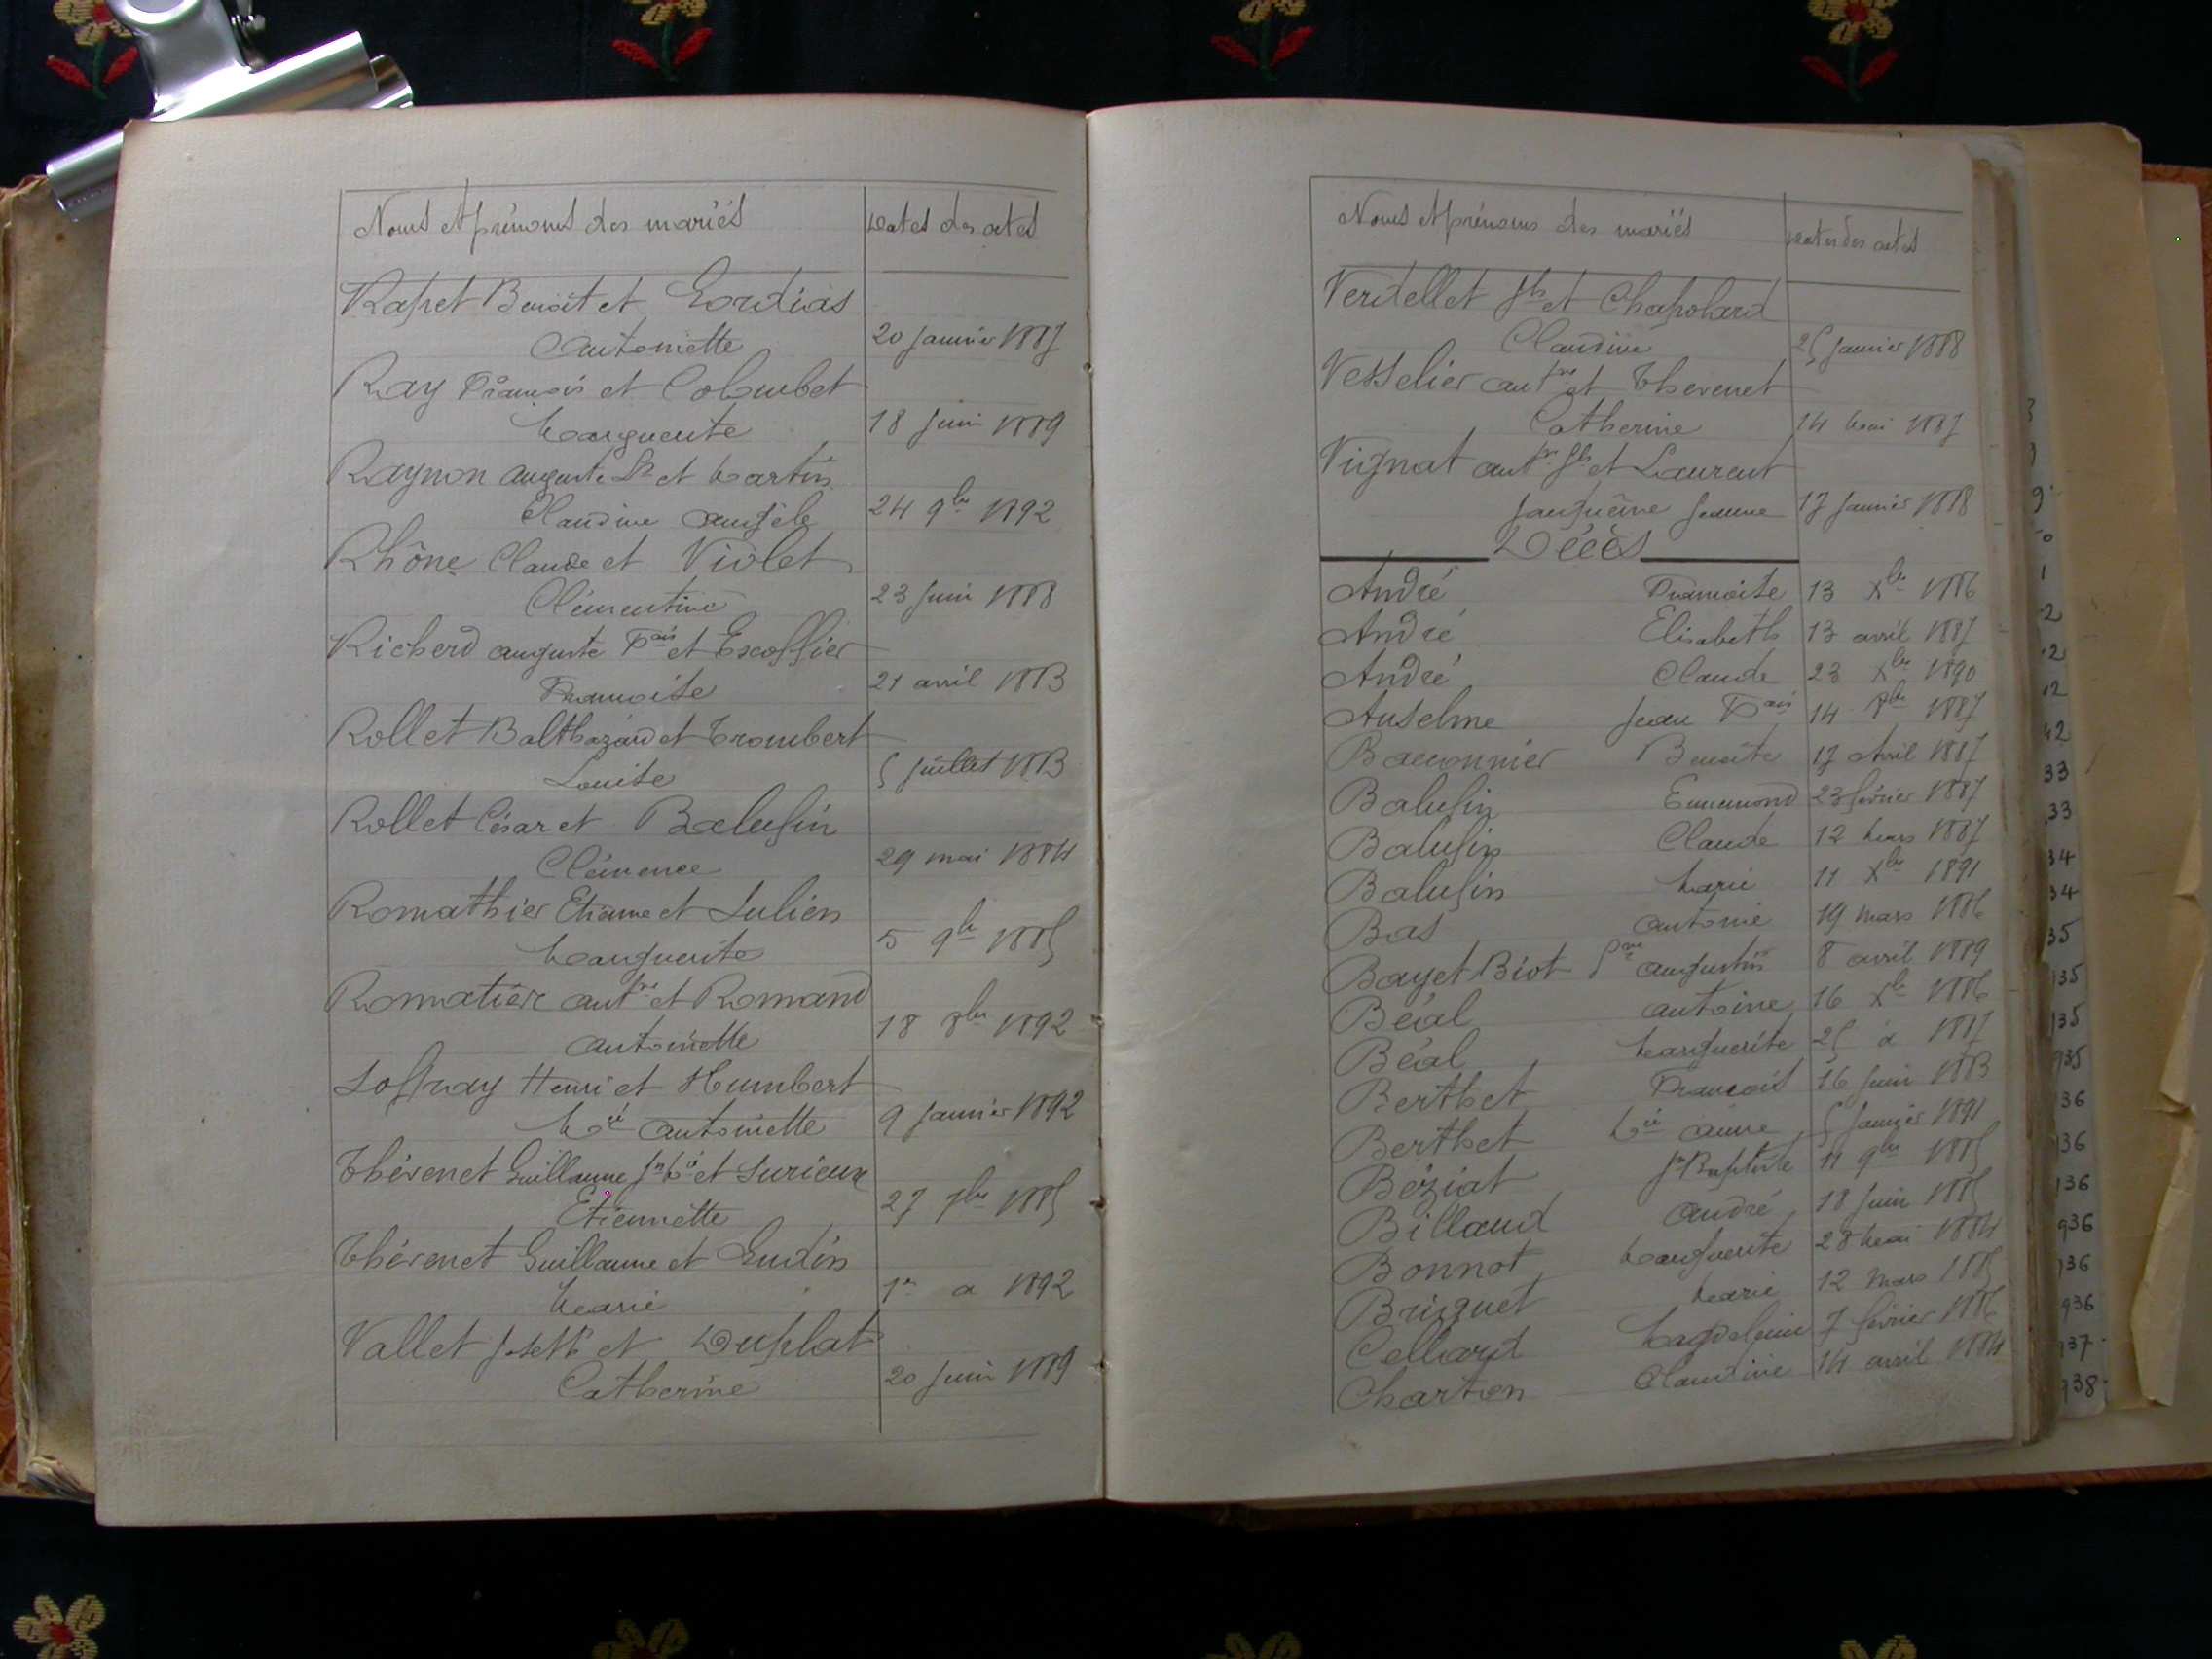 Noms et prénoms des mariés Dates des actes
Rapet Benoit et Gordias
Antoinette 20 janvier 1887
Ray François et Colombet
Marguerite 18 juin 1889
Raynon auguste et Martin
Claudine angèle 24 9bre 1892
Rhône Claude et Violet
Clémentine 23 juin 1888
Richerd auguste Fçois et Escoffier
Françoise 21 avril 1883
Rollet Balthazard et Trombert
Louise 5 juillet 1883
Rollet César et Balufin
Clémence 29 mai 1884
Romathier Etienne et Julien
Marguerite 5 9bre 1885
Romatier antne et Romand
antoinette 18 8bre 1892
Henri et Humbert
Mie antoinette 9 janvier 1892
Thévenet Guillaume Jn Mie et Surieux
Etiennette 27 7bre 1885
Thévenet Guillaume et Gudin
Marie 1er a 1892
Vallet Joseph et Duplat
Catherine 20 juin 1889
Noms et prénoms des mariés Dates des actes
Verdellet Jph et Chapolard
Claudine 25 janvier 1888
Vesselier antne et Thevenet
Catherine 14 Mai 1887
Vignat antne Jph et Laurent
Jacqueline Jeanne 17 janvier 1888
Décès
André Françoise 13 Xbre 1886
André Elisabeth 13 avril 1887
André Claude 23 Xbre 1890
Anselme Jean Fçois 14 8bre 1887
Baconnier Benoite 17 avril 1887
Balufin Ennemond 23 février 1887
Balufin Claude 12 Mars 1887
Balufin Marie 11 Xbre 1891
Bas antonie 19 mars 1886
Bayet Biot Pre augustin 8 avril 1889
Béal antoine 16 Xbre 1886
Béal Marguerite 25 a 1887
Berthet François 16 juin 1883
Berthet Mie anne 5 janvier 1891
Béziat Jn Baptiste 11 9bre 1885
Billaud andré 18 juin 1885
Bonnot Marguerite 28 Mai 1884
Briquet Marie 12 mars 1885
Cellard Magdeleine 7 février 1886
Charton Claudine 14 avril 1884
33
33
34
34
35
135
135
935
36
136
136
936
936
936
937
938